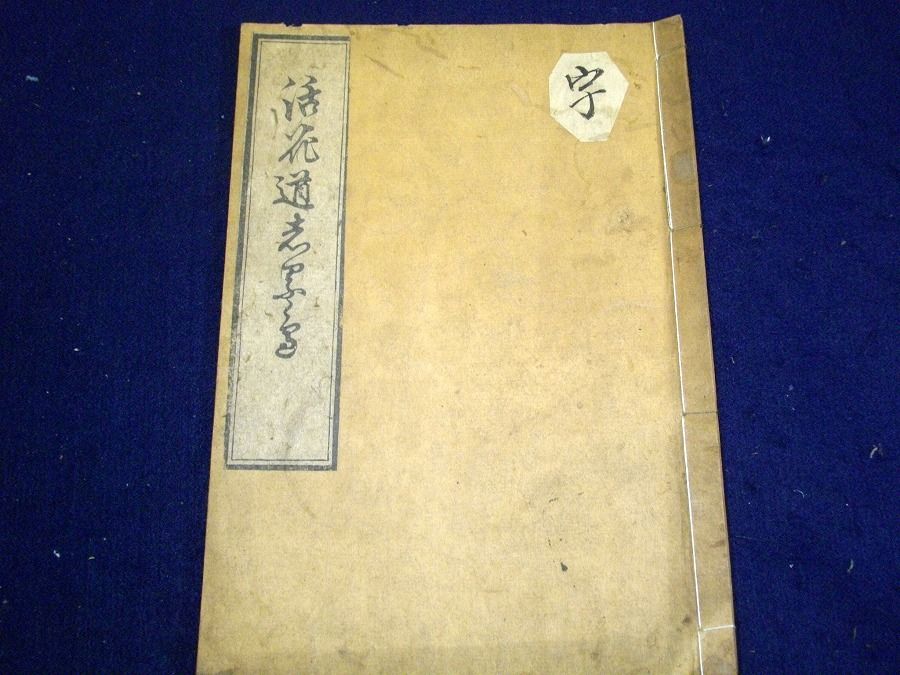 活花道志るべ
宇